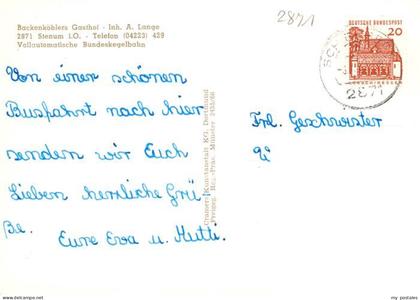 Backenköhlers Gasthof - Inh. A. Lange
2871 Stenum i.O. - Telefon (04223) 429
Vollautomatische Bundeskegelbahn
Von einer schönen
Busfahrt nach hier
senden wir Euch
lieben herzliche Grü-
ße.
Eure Eva u. Mutti.
Cramers Kunstanstalt KG. Dortmund
2871
DEUTSCHE BUNDESPOST
20
2871
Frl. Geschwister